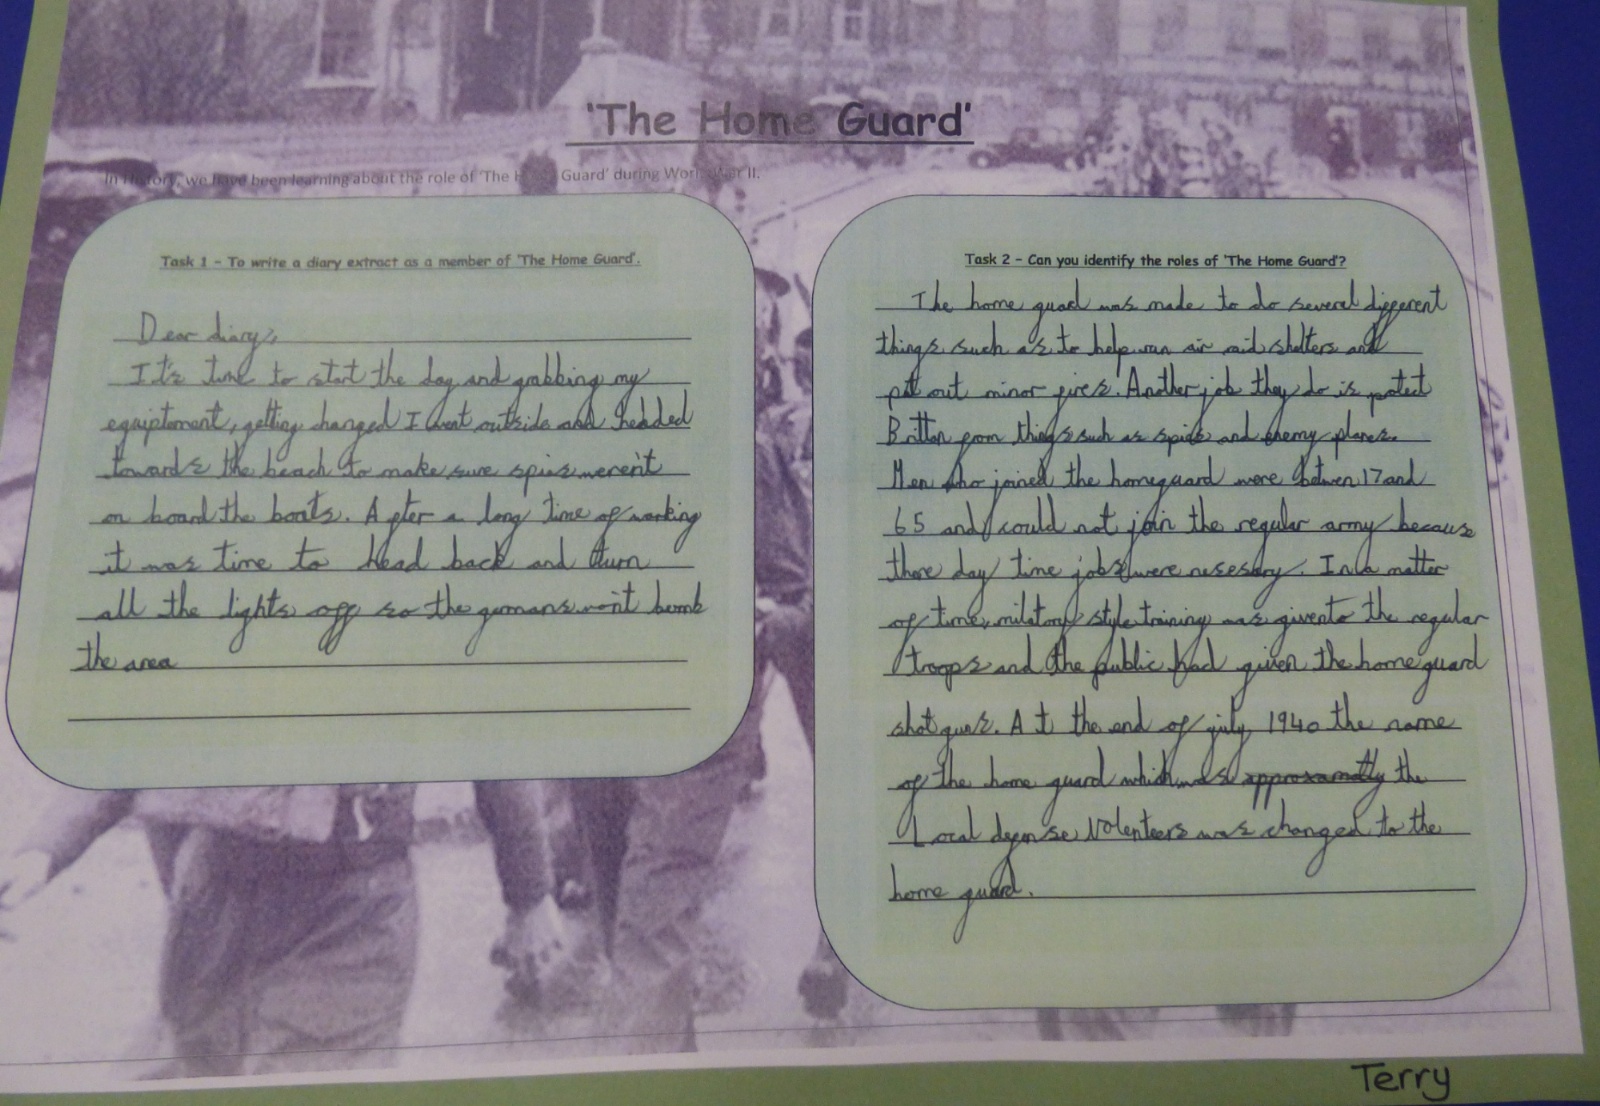 'The Home Guard'
In History, we have been learning about the role of 'The Home Guard' during World War II.
Task 1 – To write a diary extract as a member of 'The Home Guard'.
Dear diary,
It's time to start the day and grabbing my
equiptoment, getting changed I went outside and headed
towards the beach to make sure spies weren't
on board the boats. After a long time of working
it was time to head back and turn
all the lights off so the germans won't bomb
the area
Task 2 – Can you identify the roles of 'The Home Guard'?
The home guard was made to do several different
things such as to help run air raid shelters and
put out minor fires. Another job they do is protect
Britton from things such as spies and enemy planes.
Men who joined the homeguard were betwen 17 and
65 and could not join the regular army because
there day time jobs were nesesary. In a matter
of time, military style training was given to the regular
troops and the public had given the home guard
shot guns. At the end of july, 1940 the name
of the home guard which was the
Local defense Volenteers was changed to the
home guard.
Terry